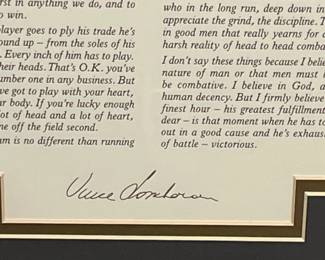 rst in anything we do, and to
o win.
player goes to ply his trade he's
ound up – from the soles of his
. Every inch of him has to play.
heir heads. That's O.K. you've
umber one in any business. But
ve got to play with your heart,
ur body. If you're lucky enough
lot of head and a lot of heart,
me off the field second.
am is no different than running
who in the long run, deep down in
appreciate the grind, the discipline. T
in good men that really yearns for d
harsh reality of head to head comba
I don't say these things because I belie
nature of man or that men must b
be combative. I believe in God, a
human decency. But I firmly believe
finest hour – his greatest fulfillment
dear – is that moment when he has to
out in a good cause and he's exhaus
of battle – victorious.
Vince Lombardi